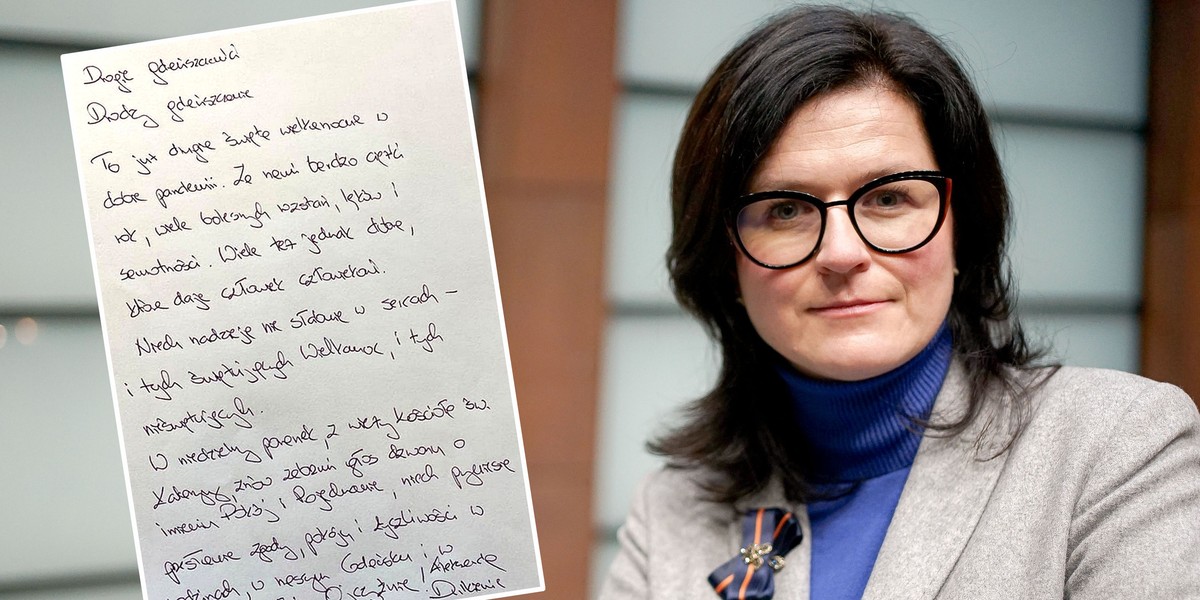 Drogie gdańszczanki
Drodzy gdańszczanie
To już drugie święta wielkanocne w
dobie pandemii. Za nami bardzo ciężki
rok, wiele bolesnych rozstań, lęków i
samotności. Wiele też jednak dobra,
które daje człowiek człowiekowi.
Niech nadzieja nie słabnie w sercach –
i tych świętujących Wielkanoc, i tych
nieświętujących.
W niedzielny poranek z wieży kościoła św.
Katarzyny, znów zabrzmi głos dzwonu o
imieniu Pokój i Pojednanie, niech przyniesie
przesłanie zgody, pokoju i życzliwości w
rodzinach, w naszym Gdańsku i w
Ojczyźnie, Aleksandra
Dulkiewicz